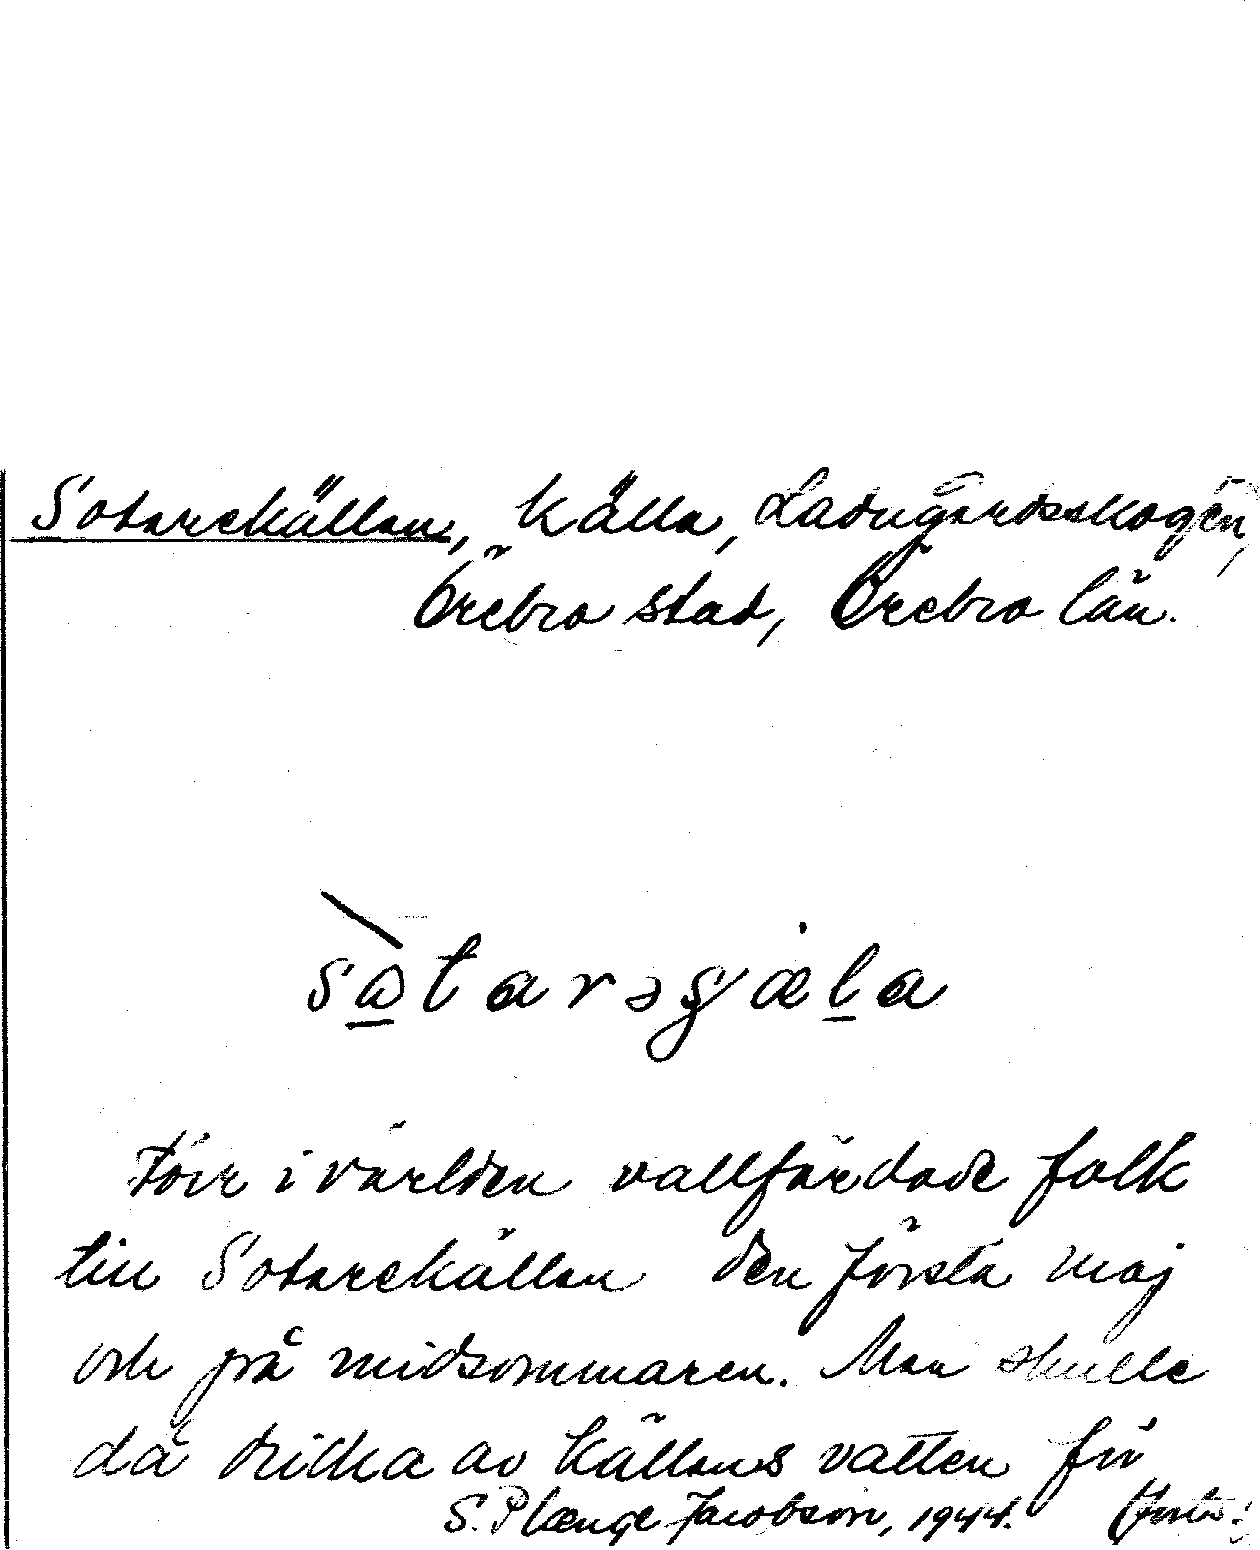 Sotarekällan, källa, Ladugårdsskogen,
Örebro stad, Örebro län.
sɷ̀tarəgjæla
Förr i världen vallfärdade folk
till Sotarekällan den första maj
och på midsommaren. Man skulle
då dricka av källans vatten för
S. Plænge Jacobson, 1944. (forts.)